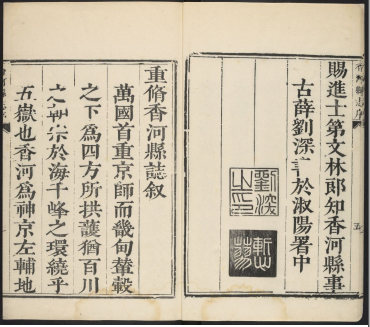 賜進士第文林郎知香河縣事
古薛劉深書於淑陽署中
劉深
之印
五
重脩香河縣誌叙
萬國首重京師而畿甸輦轂
之下為四方所拱護猶百川
之朝宗於海千峰之環繞乎
五嶽也香河為神京左輔地